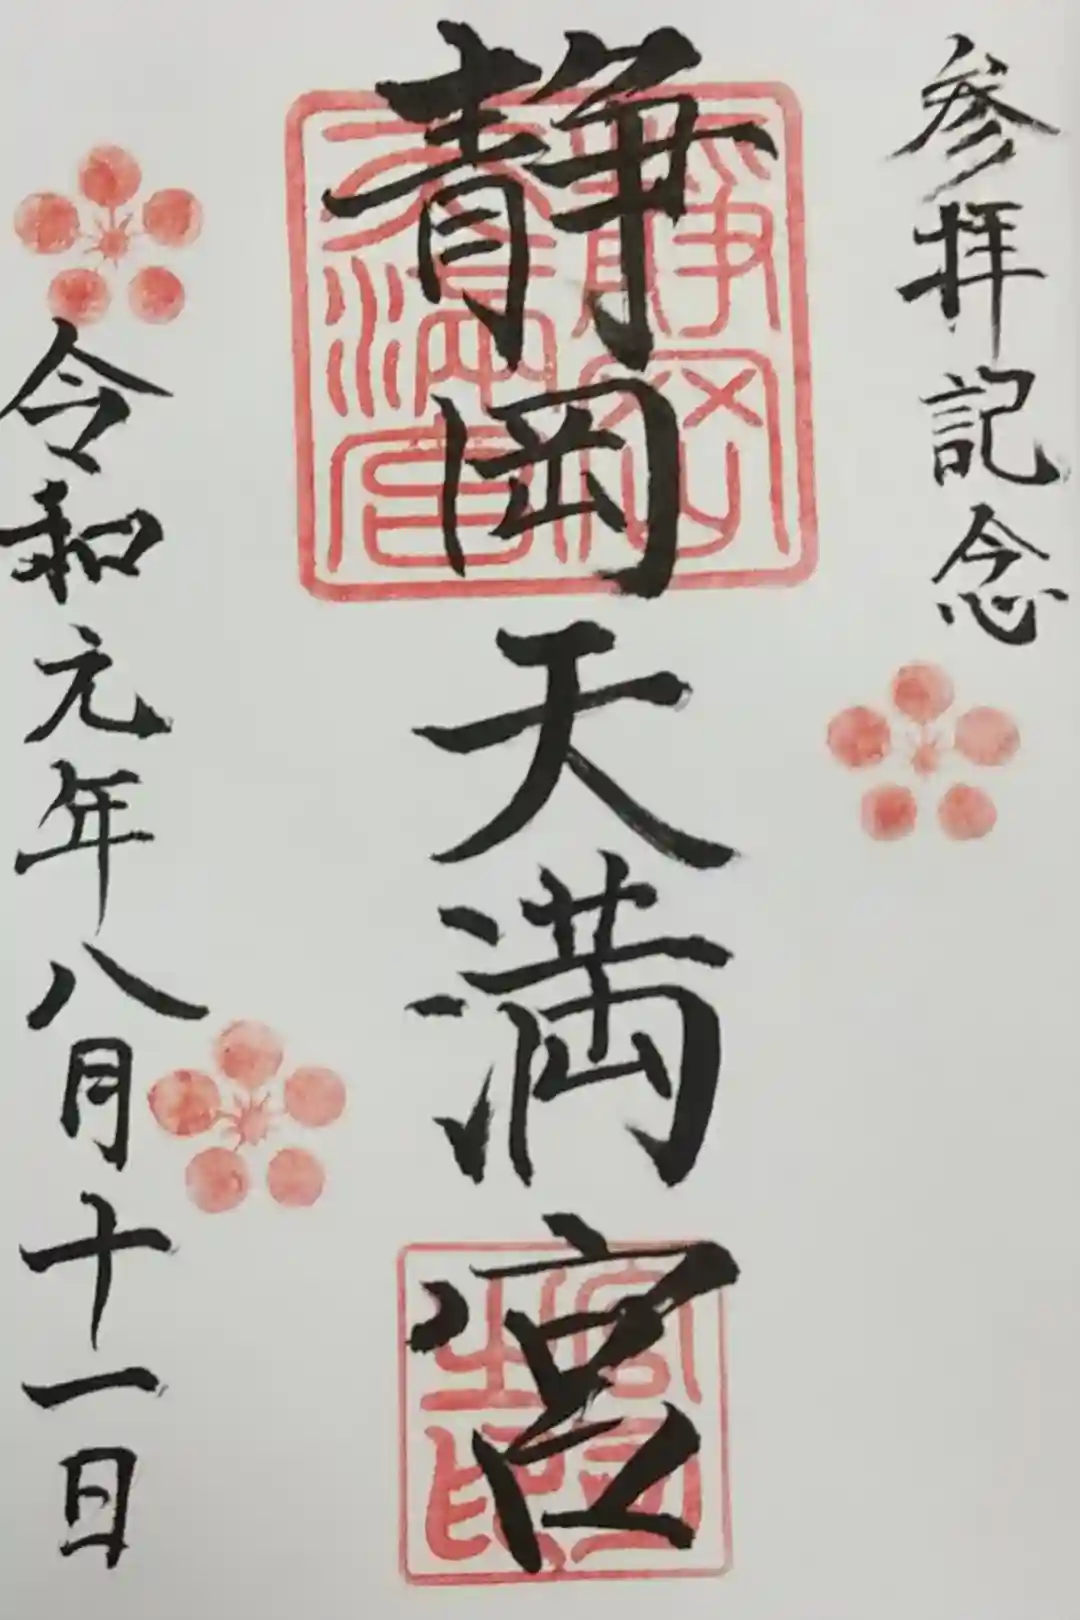 参拝記念
静岡天満宮
令和元年八月十一日
静岡
天満宮